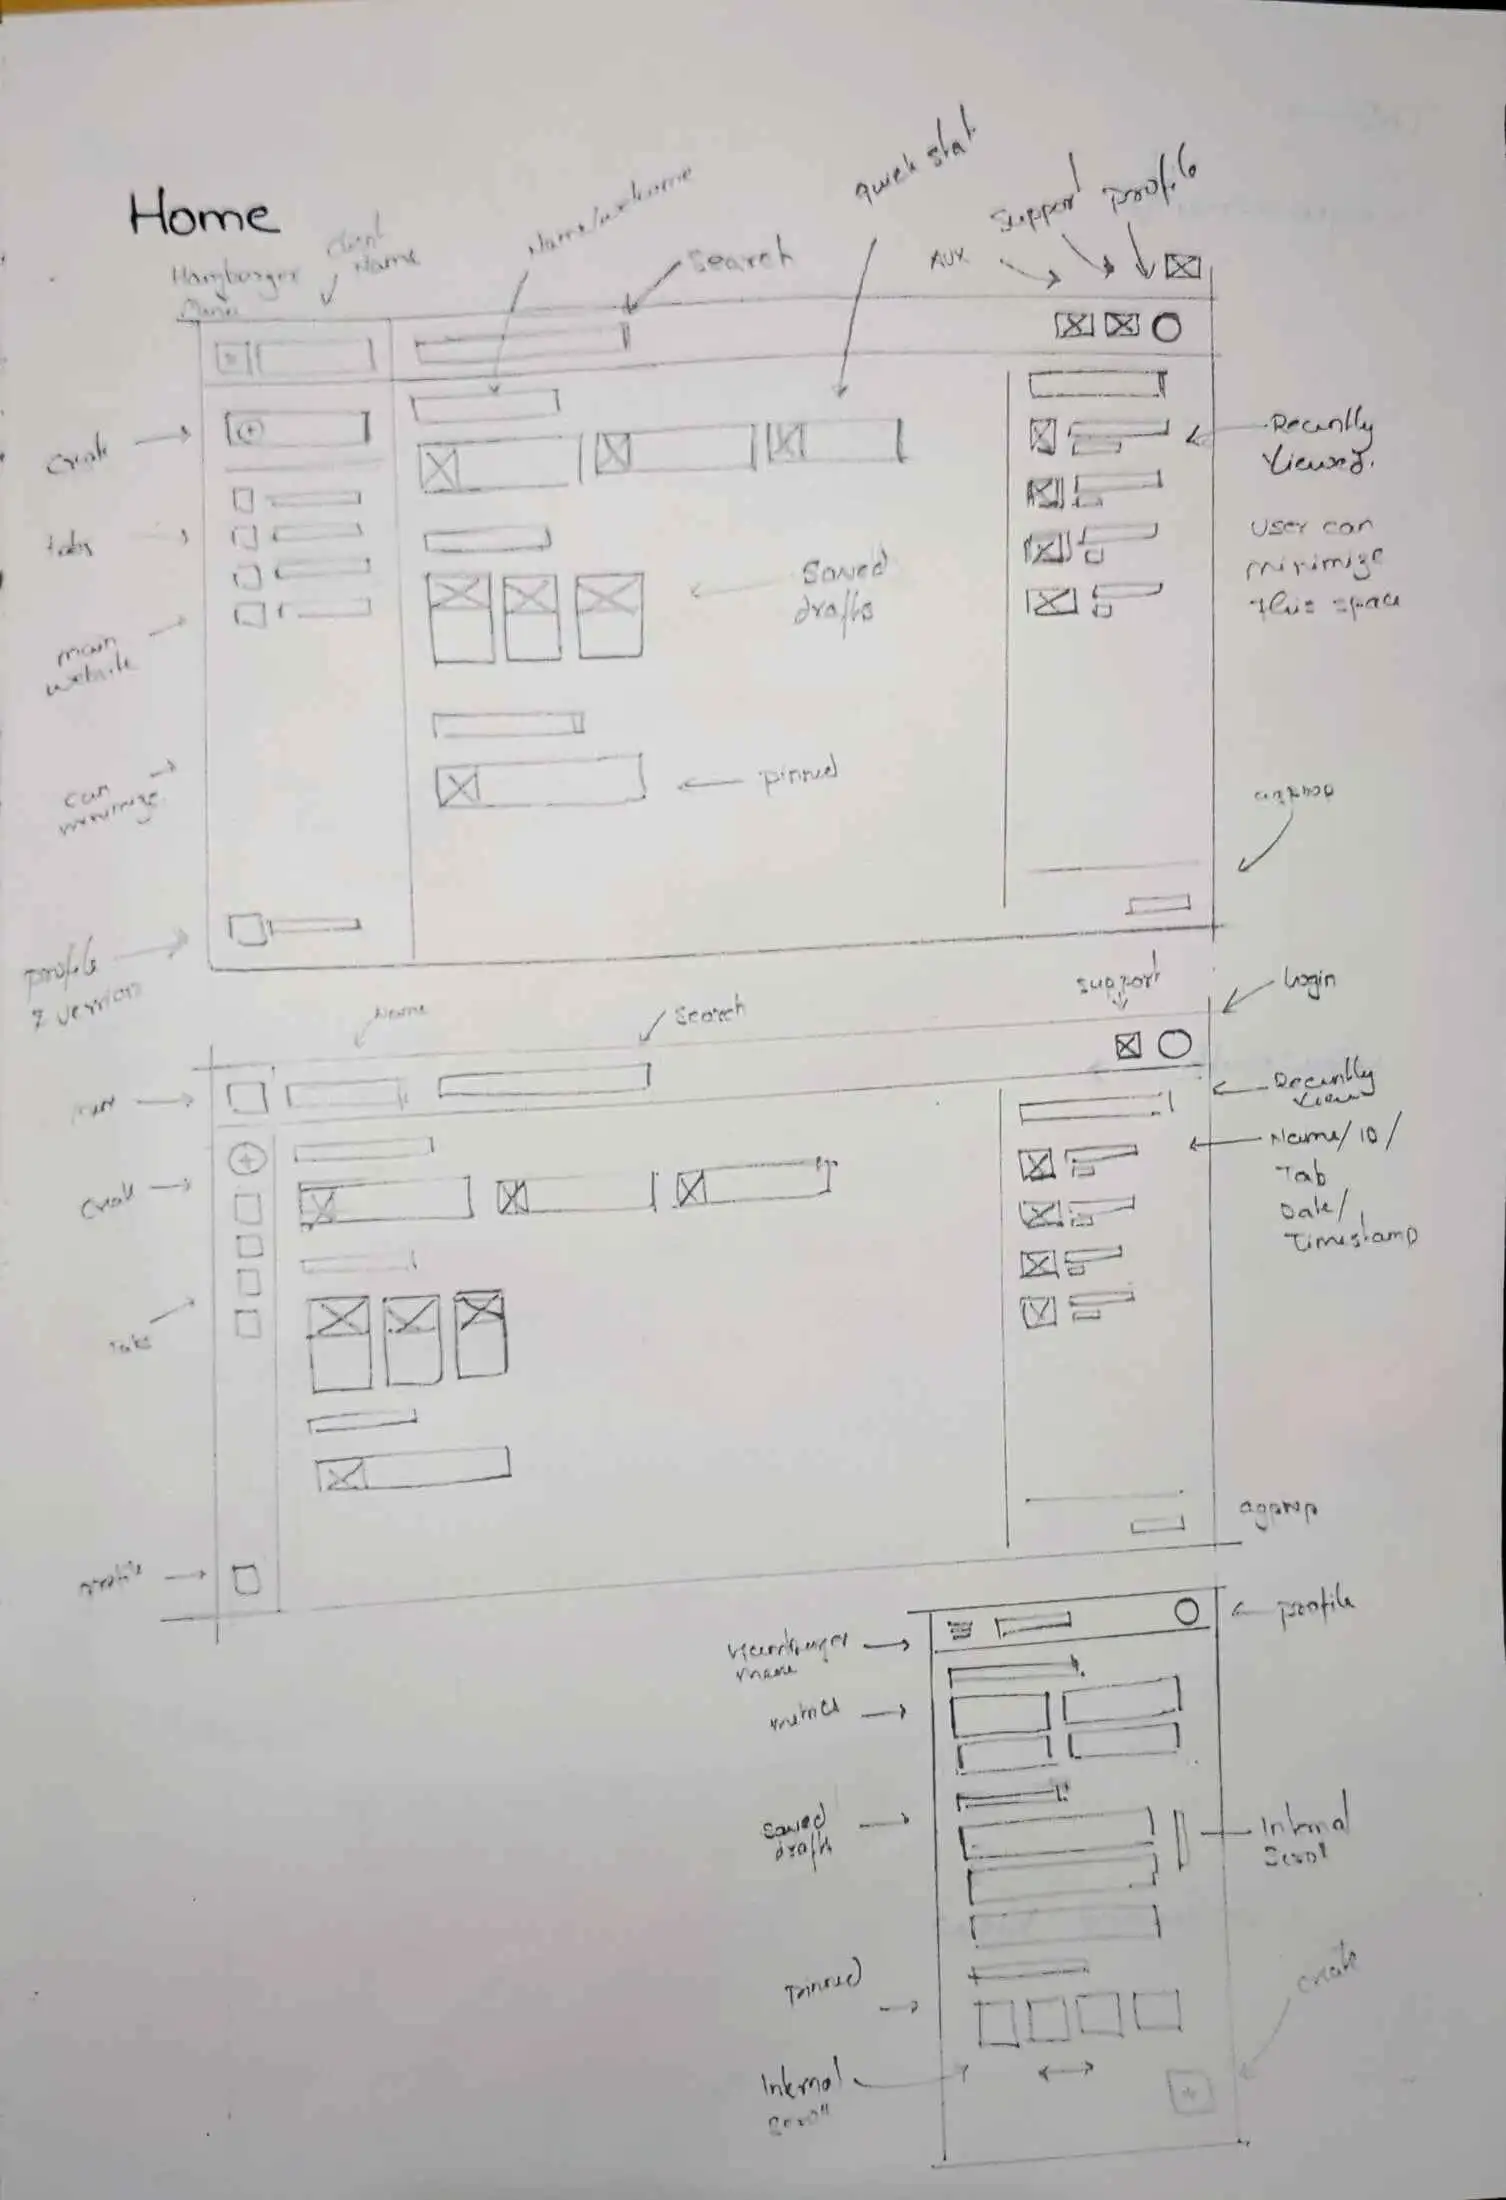 Home
Hamburger
Menu
Client
Name
Name/welcome
Search
quick stat
AUX
Support
profile
Create
tabs
main
website
can
minimize
profile
& version
Saved
drafts
pinned
Recently
Viewed.
User can
minimize
this space
Name
Search
support
Login
Create
Tabs
profile
Recently
View
Name/ID/
Tab
Date/
Timestamp
Hamburger
menu
metrics
Saved
drafts
Pinned
Internal
Scroll
profile
Internal
Scroll
Create